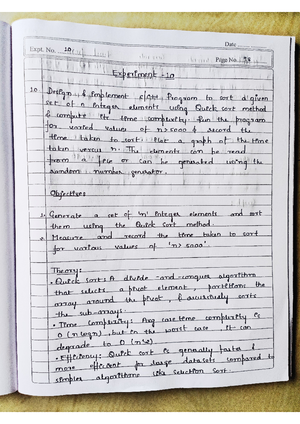 Date
Expt. No. 10
Page No.
Experiment - 10
10 Design & implement c/c++ Program to sort a given
set of n integer elements using Quick sort method
& compute its time complexity. Run the program
for varied values of n>5000 & record the
time taken to sort. Plot a graph of the time
taken versus n. The elements can be read
from a file or can be generated using the
random number generator.
Objectives
Generate a set of 'n' integer elements and sort
them using the Quick sort method.
Measure and record the time taken to sort
for various values of 'n>5000'
Theory:
• Quick sort is a divide -and-conquer algorithm
that selects a pivot element, partitions the
array around the pivot, & recursively sorts
the sub-arrays.
• Time complexity: Avg case time complexity is
O(n log n), but in the worst case it can
degrade to O(n^2)
• Efficiency: Quick sort is generally faster &
more efficient for large datasets compared to
simpler algorithms like selection sort.